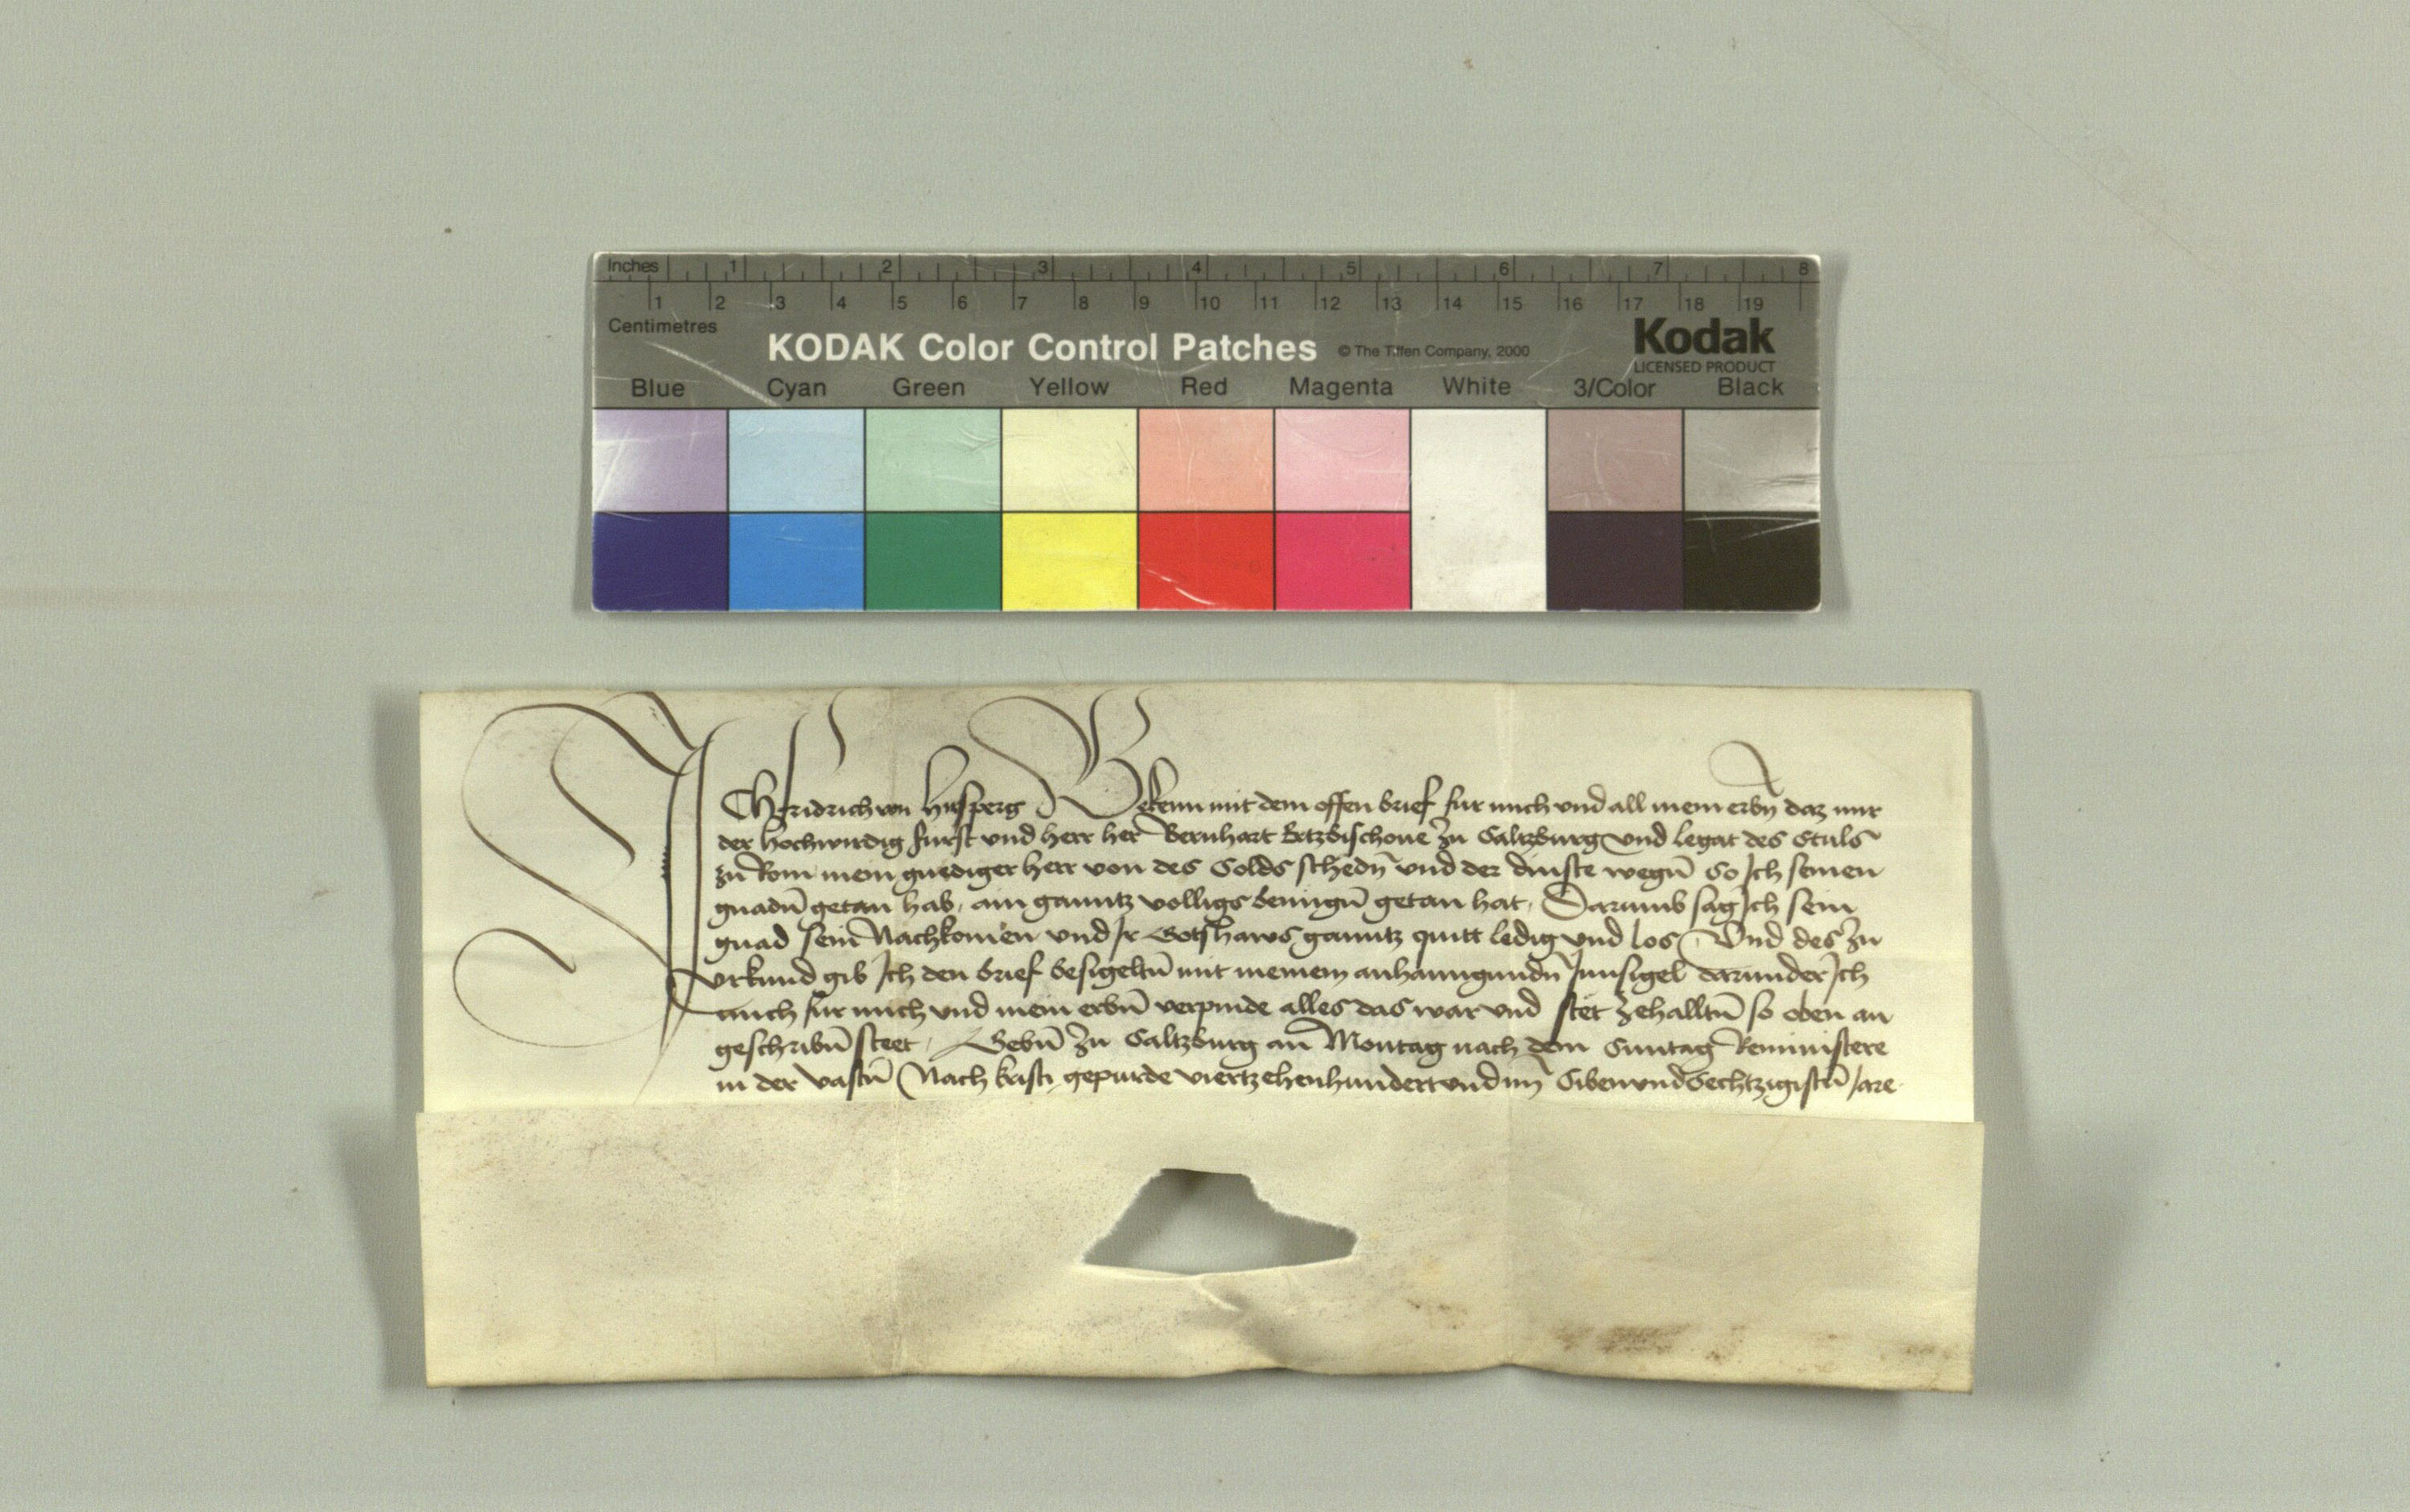 Inches 1 2 3 4 5 6 7 8
1 2 3 4 5 6 7 8 9 10 11 12 13 14 15 16 17 18 19
Centimetres
KODAK Color Control Patches © The Tiffen Company, 2000 Kodak
LICENSED PRODUCT
Blue Cyan Green Yellow Red Magenta White 3/Color Black
ICh fridrich von Bekenn mit dem offen brief fur mich vnd all mein erbn daz mir
der hochwirdig furst vnd herr her Bernhart Ertzbischoue zu Saltzburg vnd legat des Stuls
zu Rom mein gnediger herr von des Solds schedn̄ vnd der dinste wegn̄ So Ich seinen
gnadn̄ getan hab, ain ganntz volligs benugn̄ getan hat, Darumb sag Ich sein
gnad sein Nachkomen vnd Ir Gotshaws ganntz quitt ledig vnd los Vnd des zu
vrkund gib Ich den brief besigeltn̄ mit meinem anhanngundn̄ Innsigel darunder Ich
mich fur mich vnd mein erbn̄ verpinde alles das war vnd stet zehalltn̄ so oben an
geschribn̄ steet, Gebn̄ zu Saltzburg an Montag nach dem Suntag Reministere
in der vastn̄ Nach kristi gepurde viertzehenhundert vnd im̄ Siben vnd Sechtzigistn̄ Jare